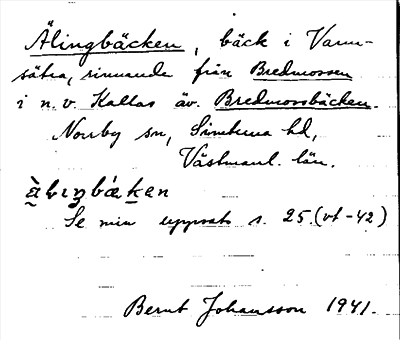 Älingbäcken, bäck i Varm-
sätra, rinnande från Bredmossen
i n.v. Kallas äv. Bredmossbäcken.
Norrby sn, Simtuna hd,
Västmanl. län.
Se min uppsats s. 25. (vt-42)
Bernt Johansson 1941.